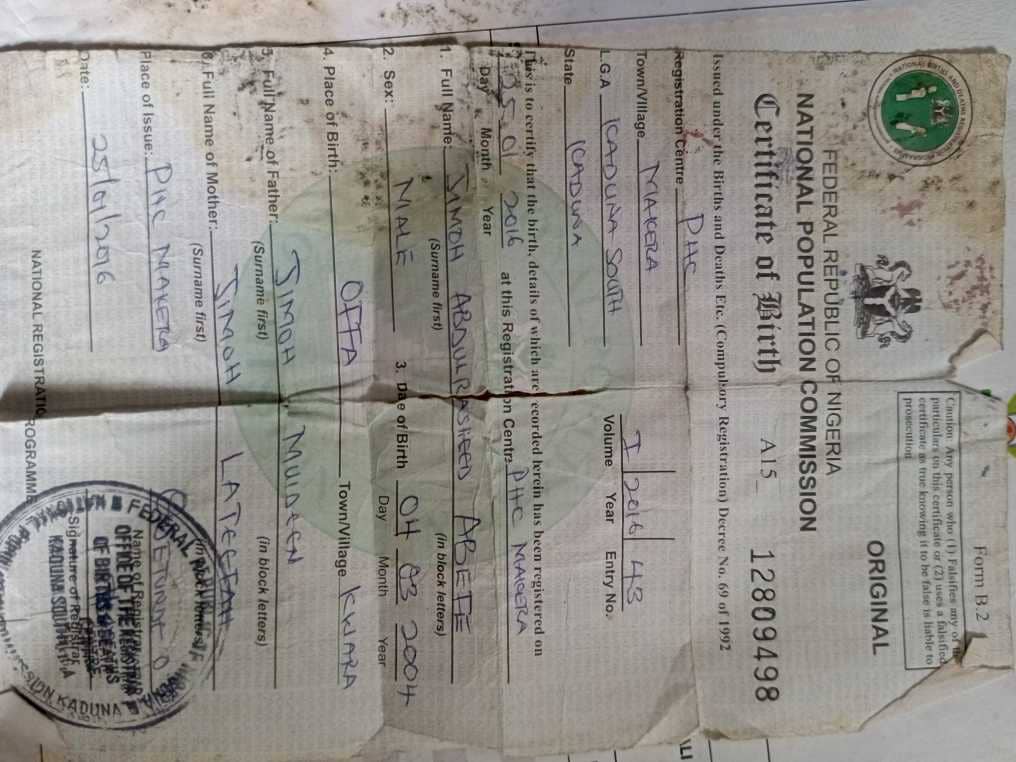 Form B.2
Caution: Any person who (1) Falsifies any of the
particulars on this certificate or (2) uses a falsified
certificate as true knowing it to be false is liable to
prosecution
FEDERAL REPUBLIC OF NIGERIA
ORIGINAL
NATIONAL POPULATION COMMISSION
Certificate of Birth A15_ 12809498
Issued under the Births and Deaths Etc. (Compulsory Registration) Decree No. 69 of 1992
Registration Centre PHC
Town/Village MAKERA
L.G.A KADUNA SOUTH
State KADUNA
I 2016 43
Volume Year Entry No.
This is to certify that the birth, details of which are recorded herein has been registered on
25 01 2016 at this Registration Centre PHC MAKERA
Day Month Year
1. Full Name: JIMOH ABDULRASHEED ABEFE
(Surname first) (in block letters)
2. Sex: MALE 3. Date of Birth 04 03 2004
Day Month Year
4. Place of Birth: OFFA Town/Village KWARA
5. Full Name of Father: JIMOH MUIDEEN
(Surname first) (in block letters)
6. Full Name of Mother: JIMOH LATEEFAH
(Surname first)
Place of Issue: PHC MAKERA
Name of Registrar
Date: 25/01/2016
Signature of Registrar
NATIONAL REGISTRATION PROGRAMME
FEDERAL
OFFICE OF THE REGISTRAR
OF BIRTHS & DEATHS
KADUNA SOUTH L.G.A
KADUNA